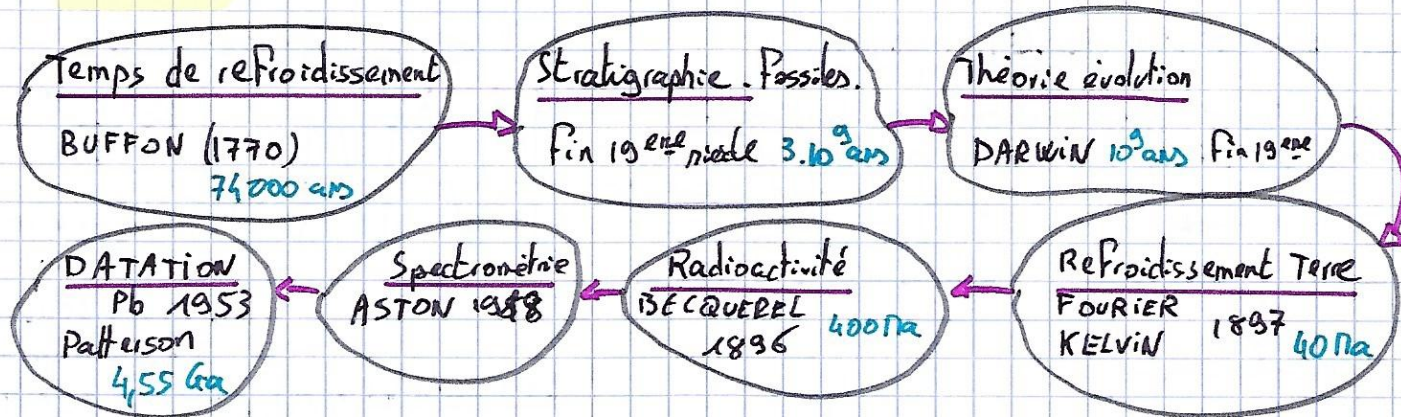 Temps de refroidissement
BUFFON (1770)
74 000 ans
Stratigraphie. Fossiles.
fin 19ème siècle 3.10⁹ ans
Théorie évolution
DARWIN 10⁹ ans fin 19ème
Refroidissement Terre
FOURIER
KELVIN 1897 40 Ma
Radioactivité
BECQUEREL
1896 400 Ma
Spectrométrie
ASTON
DATATION
Pb 1953
Patterson
4,55 Ga